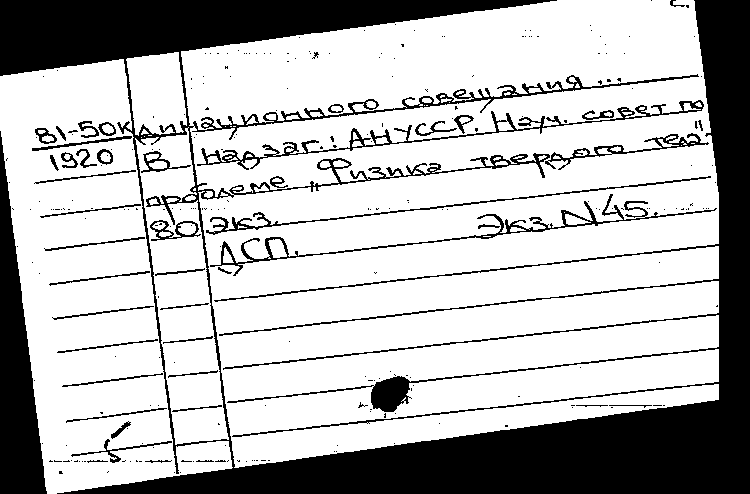 81-50к динационного совещания ...
1920 В надзаг.: АН УССР. Науч. совет по
проблеме „Физика твердого тела".
80 экз. Экз. N 45.
ДСП.